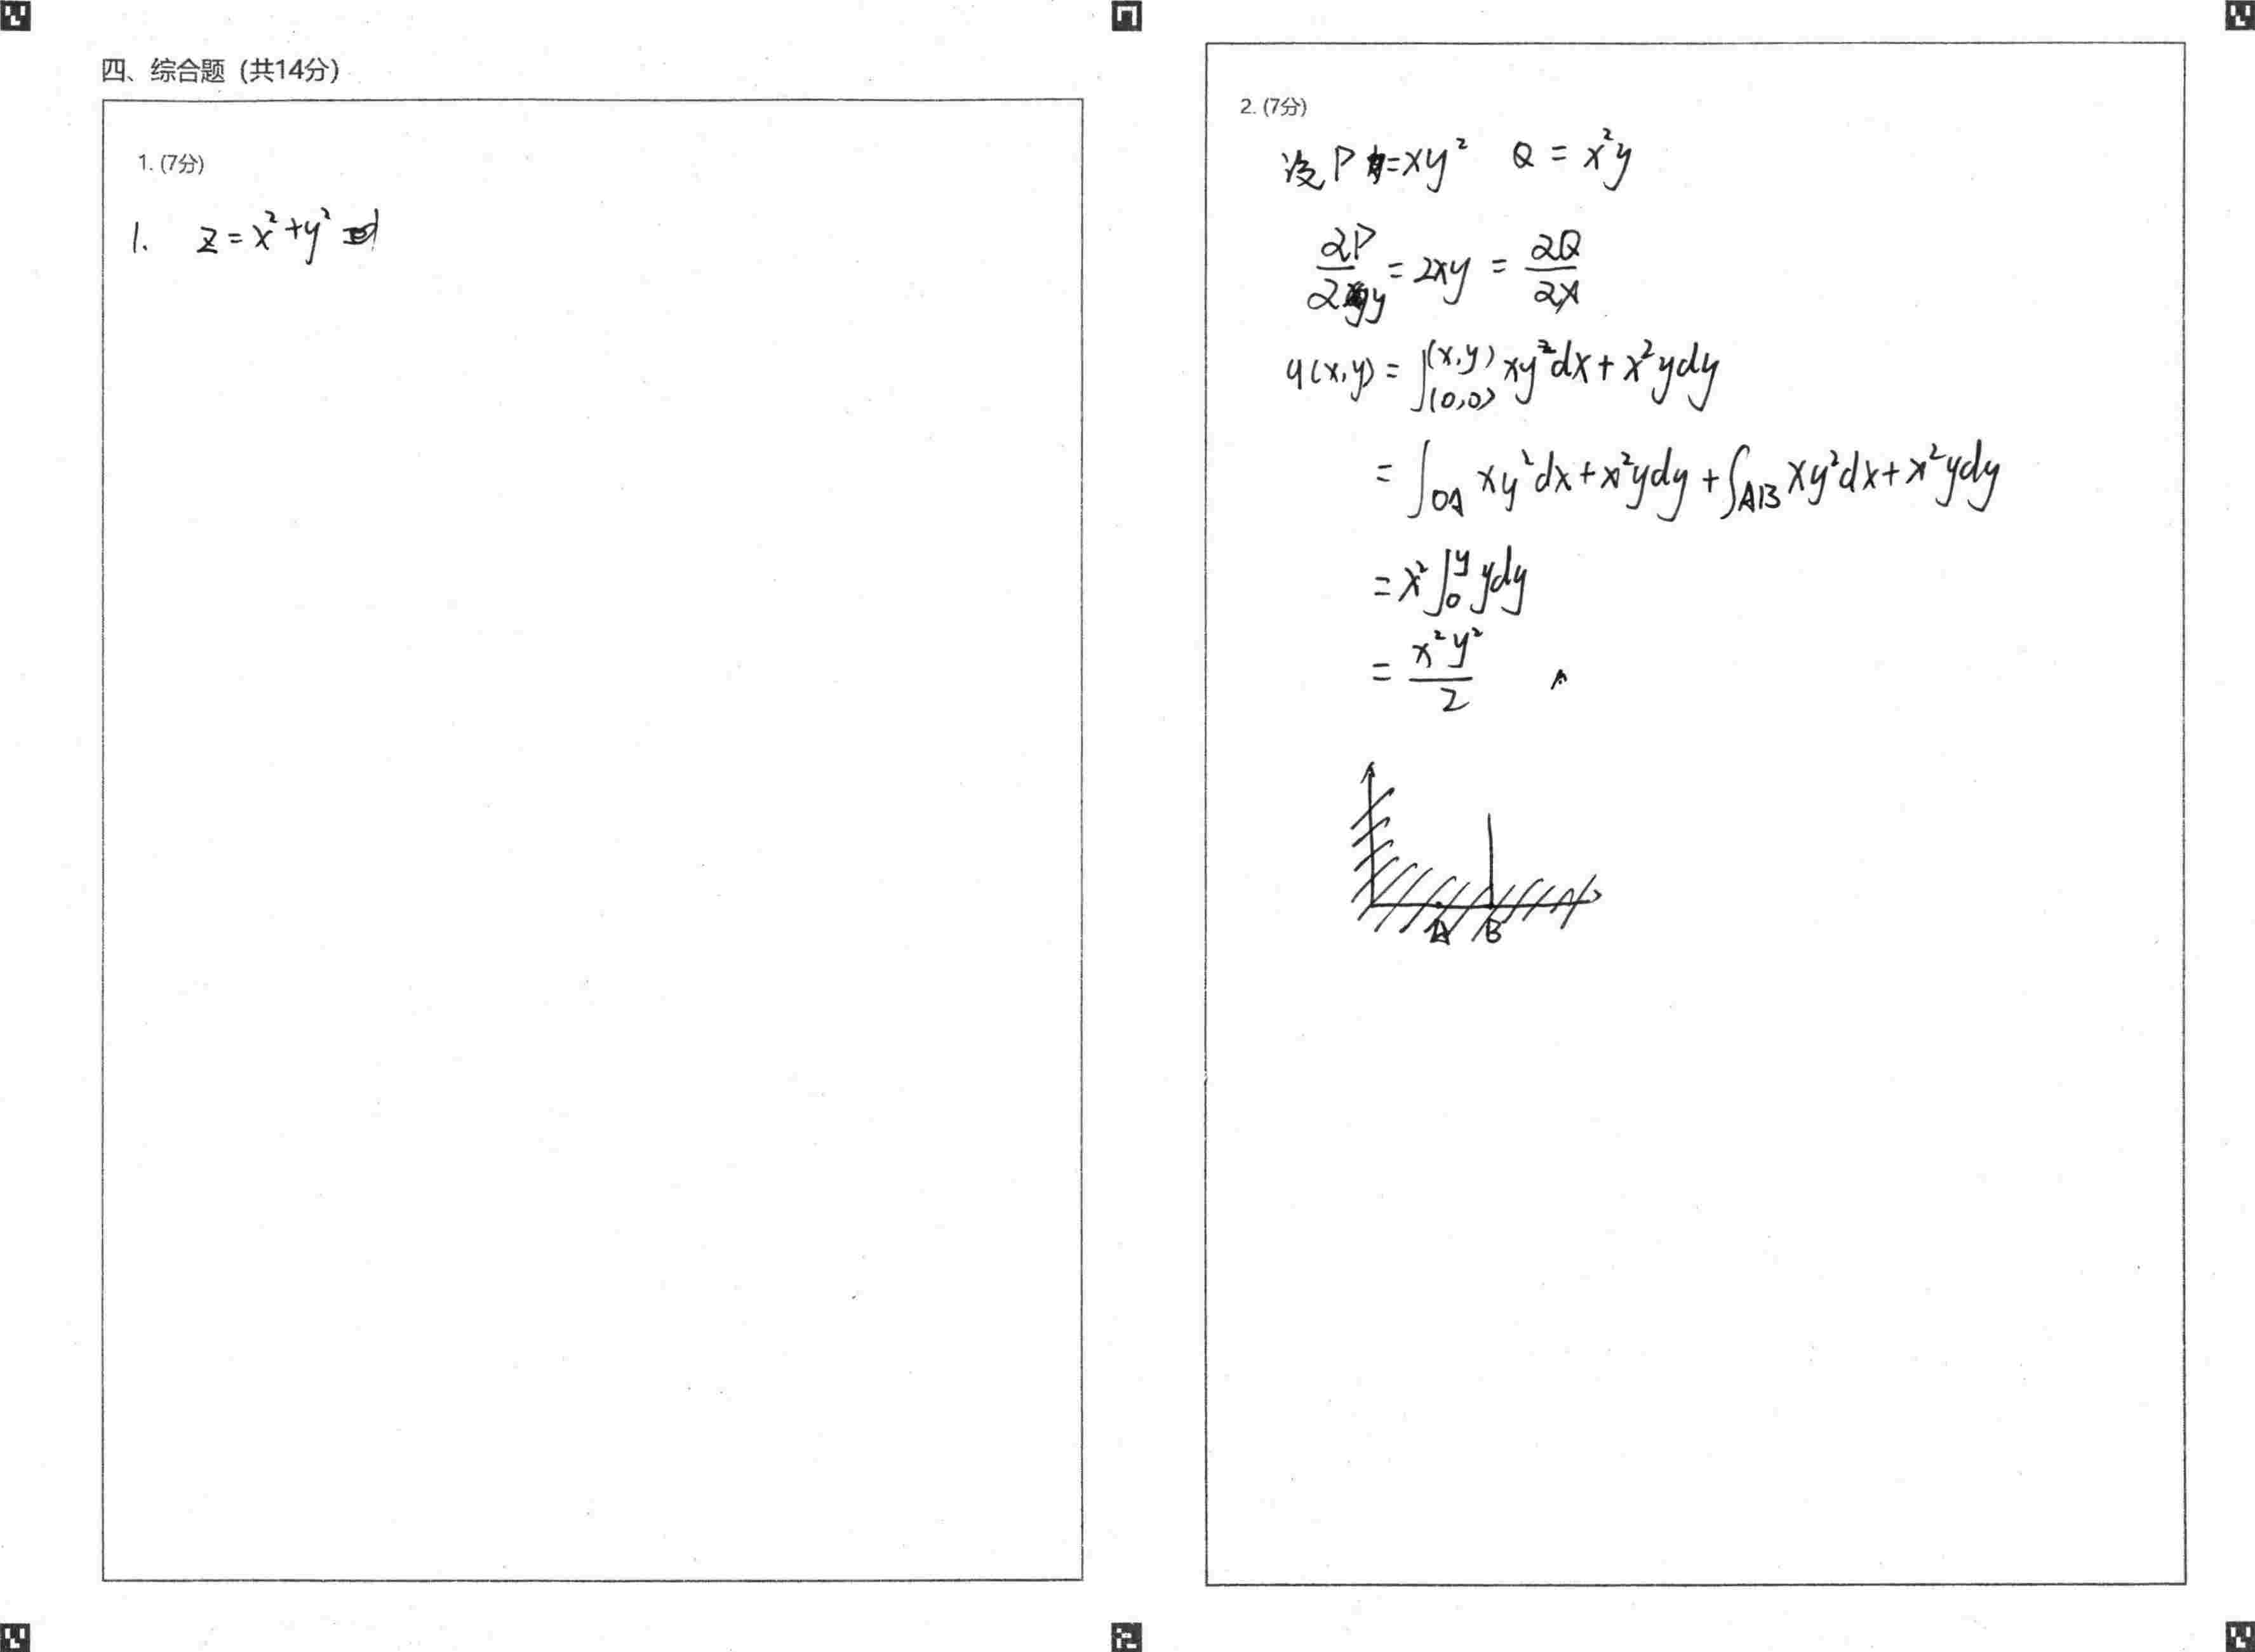 四、综合题（共14分）
1. (7分)
1. z = x² + y²
2. (7分)
设 P = xy² Q = x²y
∂P/∂y = 2xy = ∂Q/∂x
u(x,y) = ∫_(0,0)^(x,y) xy²dx + x²ydy
= ∫_OA xy²dx + x²ydy + ∫_AB xy²dx + x²ydy
= x² ∫_0^y ydy
= x²y²/2
A B